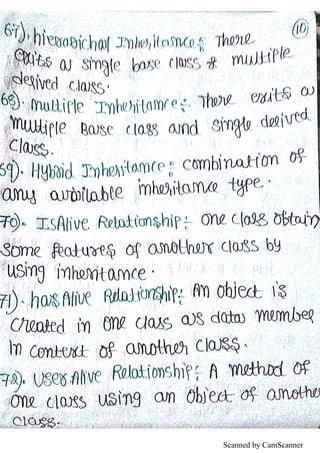 10
67). hierarichal Inheritance: There
exits a single base class & multiple
derived class.
68). multiple Inheritance: There exits a
multiple Base class and single derived
class.
69). Hybrid Inheritance: combination of
any available inheritance type.
70). IsAlive Relationship:- one class obtain
some features of another class by
using inheritance.
71). hasAlive Relationship: An object is
created in one class as data member
in context of another class.
72). UsesAlive Relationship: A method of
one class using an object of another
class.
Scanned by CamScanner